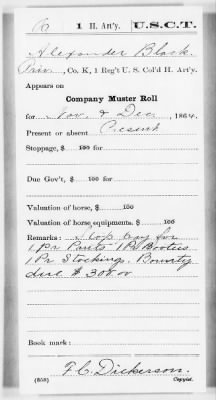 B 1 H. Art'y. U.S.C.T.
Alexander Black
Priv, Co. K, 1 Reg't U. S. Col'd H. Art'y.
Appears on
Company Muster Roll
for Nov. & Dec, 1864.
Present or absent Present
Stoppage, $ 100 for
Due Gov't, $ 100 for
Valuation of horse, $ 100
Valuation of horse equipments, $ 100
Remarks: Stop pay for
1 Pr Pants 1 Pr Bootees
1 Pr Stockings, Bounty
due $ 300.00
Book mark:
F. C. Dickerson.
(358) Copyist.